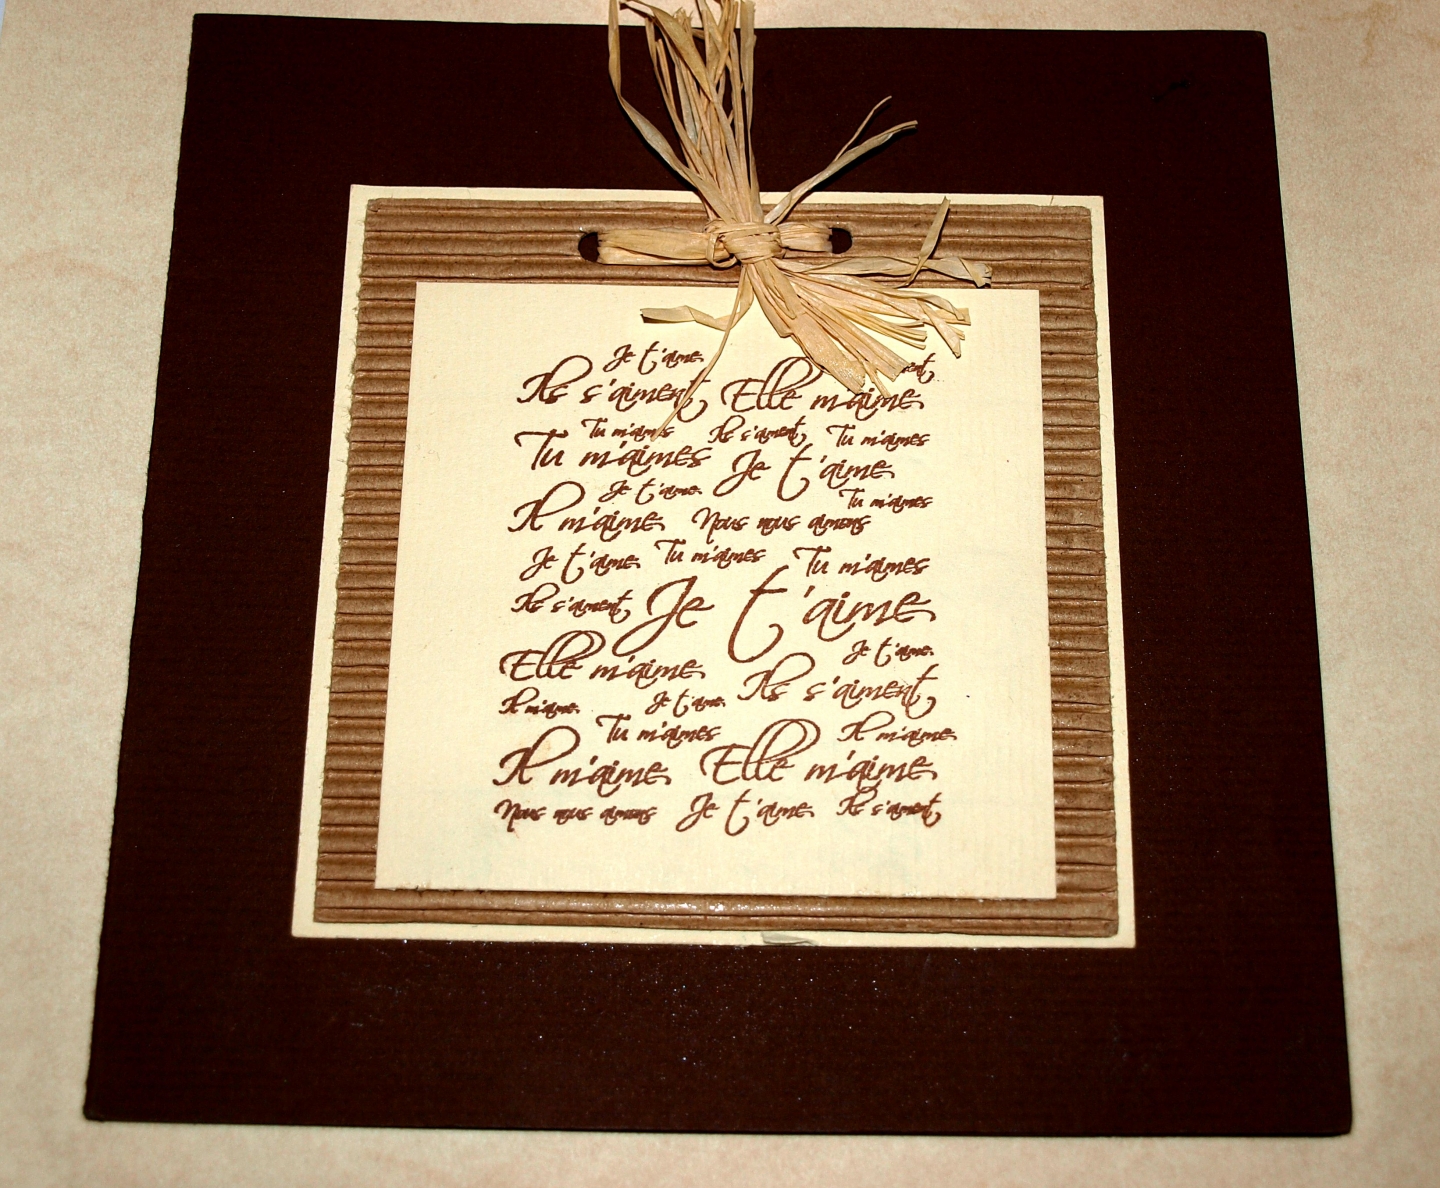 Je t'aime
Ils s'aiment Elle m'aime
Tu m'aimes Ils s'aiment Tu m'aimes
Tu m'aimes Je t'aime
Je t'aime Tu m'aimes
Il m'aime Nous nous aimons
Je t'aime Tu m'aimes Tu m'aimes
Ils s'aiment Je t'aime
Je t'aime
Elle m'aime Ils s'aiment
Il m'aime Je t'aime
Tu m'aimes Il m'aime
Il m'aime Elle m'aime
Nous nous aimons Je t'aime Ils s'aiment